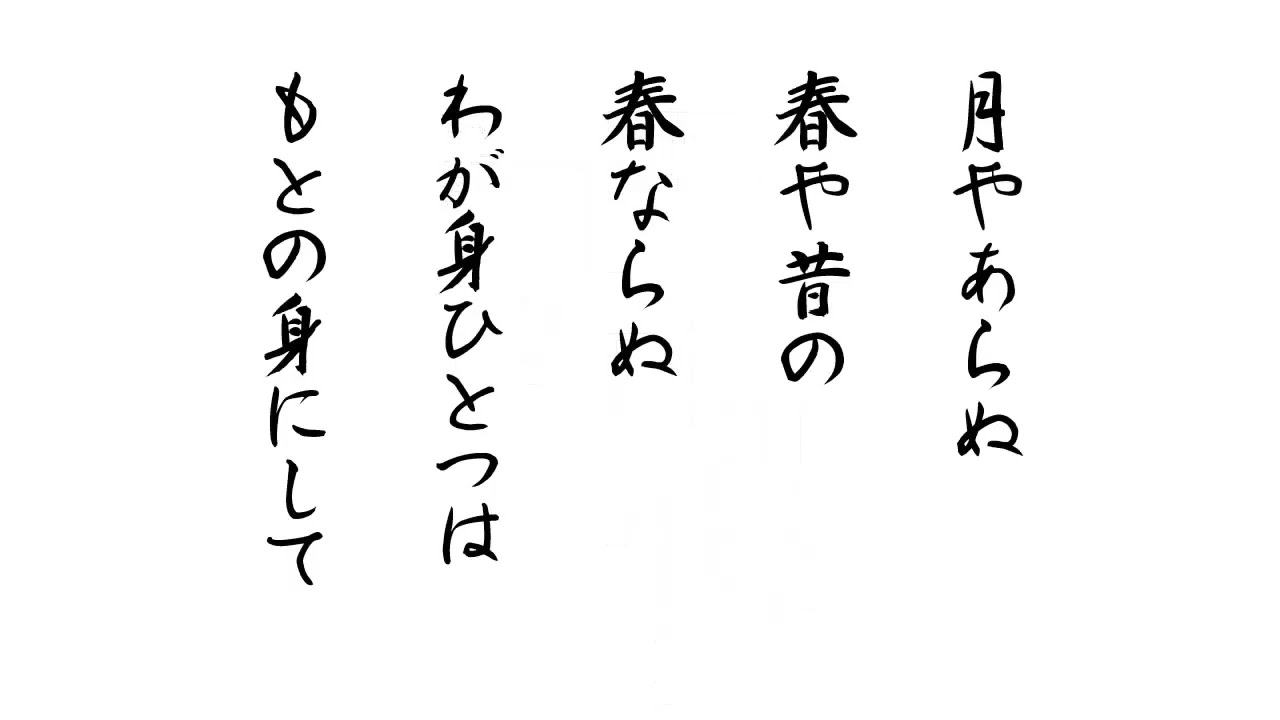 月やあらぬ
春や昔の
春ならぬ
わが身ひとつは
もとの身にして